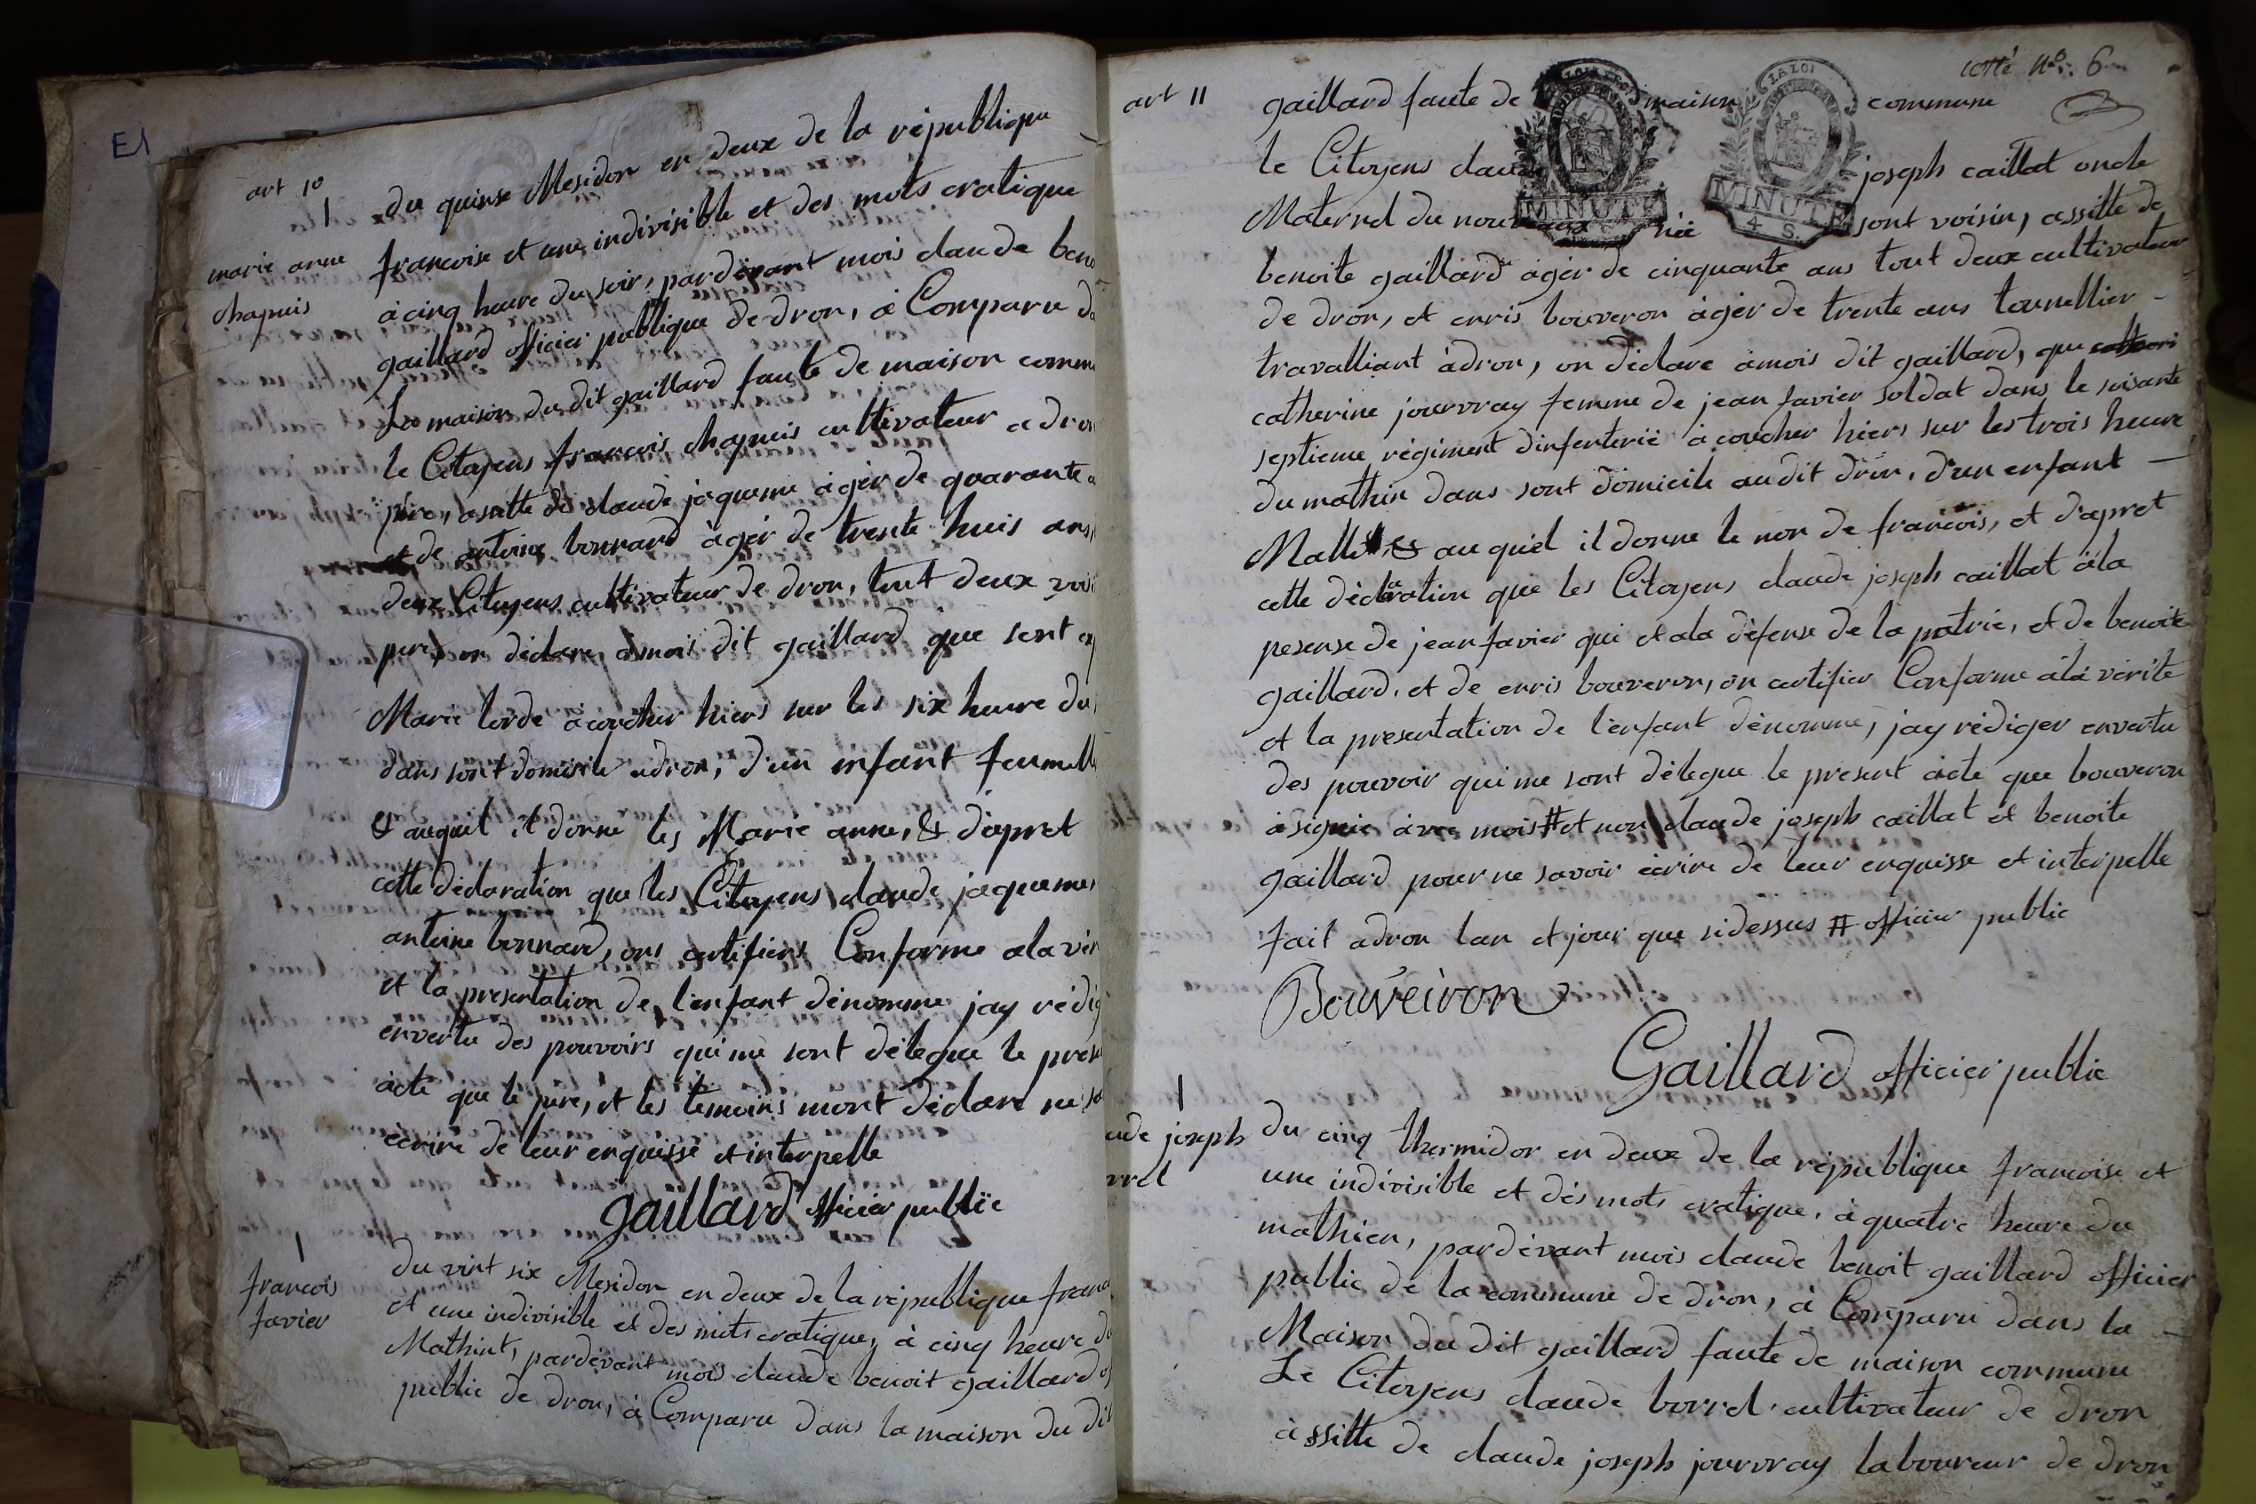 E1
art 10
1
marie anne
chapuis
du quinse Mesidor en deux de la république
francoise et une indivisible et des mots cratique
à cinq heure du soir, pardevant mois claude beno
gaillard officier publique de dron, à Comparu da
La maison du dit gaillard faute de maison comm
le Citoyens francois chapuis cultivateur a dron
père, assitte de claude jaqueme àgér de quarante a
et de antoine bonnard àgér de trente huis ans,
deux Citoyens cultivateur de dron, tout deux voi
pere, on déclare à mois dit gaillard que sont
Marie lorde à coucher hiers sur les six heure du
dans sont domicile adron, d'un enfant femmelle
et auquel it donne les Marie anne, & d'apret
cette déclaration que les Citoyens claude jaqueme
antoine bonnard, ons certifiers Conforme ala vér
et la presentation de l'enfant dénomme jay rédig
envertu des pouvoirs qui me sont délegue le prese
acte que le pere, et les temoins mont déclare ne s
ecrire de leur enquisse et interpelle
gaillard officier publïc
1
francois
favier
du vint six Mesidor en deux de la république franc
et une indivisible et des mots cratique, à cinq heure du
Mathint, pardevant mois claude benoit gaillard of
public de dron, à Comparu dans la maison du dit
cotté no. 6
art 11
gaillard faute de maison commune
le Citoyens claude joseph caillat oncle
Maternel du nouveaux née sont voisin, assitte de
benoite gaillard àgér de cinquante ans tout deux cultivateur
de dron, et enris bouveron àgér de trente ans tonnellier
travalliant àdron, on déclare àmois dit gaillard, que
catherine jourvray femme de jean favier soldat dans le soisante
septieme régiment d'infenterië à coucher hiers sur les trois heure
du mathin dans sont domicile audit dron, d'un enfant
Malle & au quel il donne le non de francois, et d'apret
cette déclaration que les Citoyens claude joseph caillat àla
pesense de jean favier qui et ala défense de la patrie, et de benoite
gaillard, et de enris bouveron, on certifier Conforme àla vérite
et la presentation de l'enfant dénomme, jay rédiger envertu
des pouvoir qui me sont délegue le present acte que bouveron
à signie avec mois # et non claude joseph caillat et benoite
gaillard pour ne savoir écrire de leur enquisse et interpelle
fait adron lan et jour que sidessus # officier public
Bouveiron
Gaillard officier public
1
ude joseph
rrel
du cinq thermidor en deux de la république francoise et
une indivisible et dés mots cratique, à quatre heure du
mathien, pardevant mois claude benoit gaillard officier
public de la commune de dron, à Comparu dans la
Maison du dit gaillard faute de maison commune
Le Citoyens claude borrel cultivateur de dron
àssitte de claude joseph jourvray laboureur de dron
LA LOI
MINUTE
LA LOI
MINUTE
4 S.